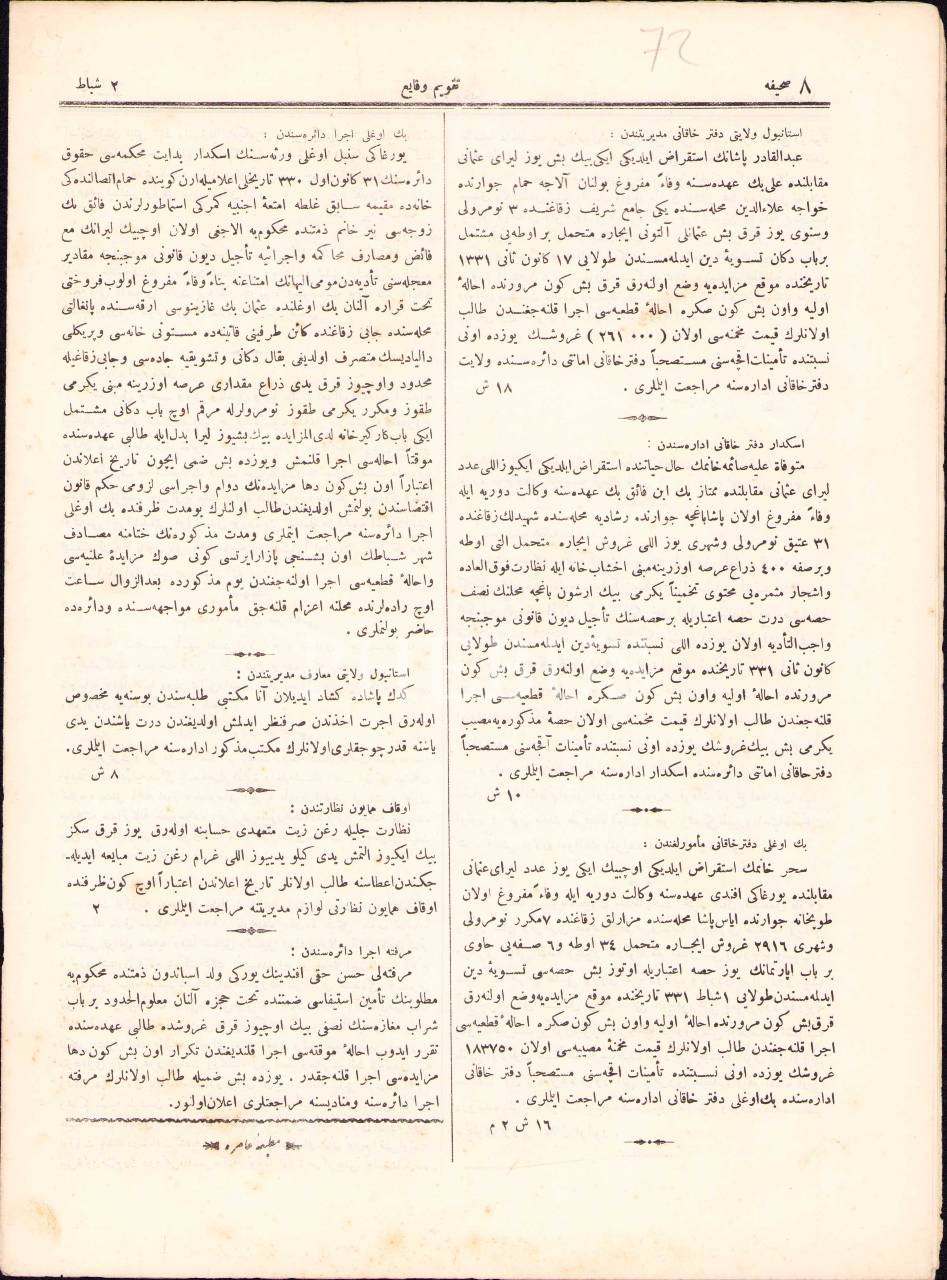 72
٨ صحیفه
تقویم وقایع
٢ شباط
استانبول ولایتی دفتر خاقانی مدیریتندن :
عبدالقادر پاشانك استقراض ایلدیكی ایكی‌بیك بش یوز لیرای عثمانی
مقابلنده علی‌بك عهده‌سنه وفاءً مفروغ بولنان آلاجه حمام جوارنده
خواجه علاءالدین محله‌سنده یكی جامع شریف زقاغنده ٣ نومرولی
وسنوی یوز قرق بش عثمانلی آلتونی ایجاره متحمل بر اوطه‌یی مشتمل
برباب دكان تسویهٔ دین ایدلمه‌مسندن طولایی ١٧ كانون ثانی ١٣٣١
تاریخنده موقع مزایده‌یه وضع اوله‌رق قرق بش كون مرورنده احالهٔ
اولیه واون بش كون صكره احالهٔ قطعیه‌سی اجرا قلنه‌جغندن طالب
اولانلرك قیمت مخمنه‌سی اولان ( ٢٦١٠٠٠ ) غروشك یوزده اونی
نسبتنده تأمینات اقچه‌سنی مستصحباً دفترخاقانی امانتی دائره‌سنده ولایت
دفترخاقانی اداره‌سنه مراجعت ایللری .
١٨ ش
اسكدار دفتر خاقانی اداره‌سندن :
متوفاة علیه‌صائمه‌خانمك حال‌حیاتنده استقراض ایلدیكی ایكیوزاللی‌عدد
لیرای عثمانی مقابلنده ممتاز بك ابن فائق بك عهده‌سنه وكالت دوریه ایله
وفاءً مفروغ اولان پاشاباغچه جوارنده رشادیه محله‌سنده شهیدلك‌زقاغنده
٣١ عتیق نومرولی وشهری یوز اللی غروش ایجاره متحمل التی اوطه
وبرصفه ٤٠٠ ذراع‌عرصه اوزرینه‌مبنی اخشاب‌خانه ایله نظارت‌فوق‌العاده
واشجار مثمره‌یی محتوی تخمیناً یكرمی بیك ارشون باغچه محلنك نصف
حصه‌سی درت حصه اعتباریله برحصه‌سنك تأجیل دیون قانونی موجبنجه
واجب‌التأدیه اولان یوزده اللی نسبتنده تسویهٔ‌دین ایدلمه‌مسندن طولایی
كانون ثانی ٣٣١ تاریخنده موقع مزایده‌یه وضع اوله‌رق قرق بش كون
مرورنده احالهٔ اولیه واون بش كون صكره احالهٔ قطعیه‌سی اجرا
قلنه‌جغندن طالب اولانلرك قیمت مخمنه‌سی اولان حصهٔ مذكوره‌یه‌مصیب
یكرمی بش بیك‌غروشك یوزده اونی نسبتنده تأمینات آقچه‌سنی مستصحباً
دفترخاقانی امانتی دائره‌سنده اسكدار اداره‌سنه مراجعت ایللری .
١٠ ش
بك اوغلی دفترخاقانی مأمورلغندن :
سحر خانمك استقراض ایلدیكی اوچبیك ایكی یوز عدد لیرای‌عثمانی
مقابلنده یورغاكی افندی عهده‌سنه وكالت دوریه ایله وفاءً‌مفروغ اولان
طوپخانه جوارنده ایاس‌پاشا محله‌سنده مزارلق زقاغنده ٧مكرر نومرولی
وشهری ٢٩١٦ غروش ایجاره متحمل ٣٤ اوطه و٦ صفه‌یی حاوی
بر باب اپارتمانك یوز حصه اعتباریله اوتوز بش حصه‌سی تسویهٔ دین
ایدلمه‌مسندن‌طولایی ١شباط ٣٣١ تاریخنده موقع مزایده‌یه‌وضع اوله‌رق
قرق‌بش كون مرورنده احالهٔ اولیه واون بش كون‌صكره احالهٔ قطعیه‌سی
اجرا قلنه‌جغندن طالب اولانلرك قیمت مخمنهٔ مصیبه‌سی اولان ١٨٣٧٥٠
غروشك یوزده اونی نسبتنده تأمینات اقچه‌سنی مستصحباً دفتر خاقانی
اداره‌سنده بك‌اوغلی دفتر خاقانی اداره‌سنه مراجعت ایللری .
١٦ ش ٢ م
بك اوغلی اجرا دائره‌سندن :
یورغاكی سنبل اوغلی ورثه‌سنك اسكدار بدایت محكمه‌سی حقوق
دائره‌سنك ٣١ كانون‌اول ٣٣٠ تاریخلی‌اعلامیله‌ارن‌كوینده حمام‌اتصالنده‌كی
خانه‌ده مقیمه سابق غلطه امتعهٔ اجنبیه كمركی استماطورلرندن فائق بك
زوجه‌سی نیر خانم ذمتنده محكوم‌به الاجغی اولان اوچبیك لیرانك مع
فائض ومصارف محاكمه واجرائیه تأجیل دیون قانونی موجبنجه مقادیر
معجله‌سنی تأدیه‌دن‌مومی‌الیهانك امتناعنه بناءً‌وفاءً مفروغ اولوب‌فروختی
تحت قراره آلنان بك اوغلنده عثمان بك غازینوسی ارقه‌سنده پانغالتی
محله‌سنده جابی زقاغنده كائن طرفینی قاتینه‌ده مستونی خانه‌سی وپریكلی
دالیادیسك متصرف اولدیغی بقال دكانی وتشویقیه جاده‌سی وجابی‌زقاغیله
محدود واوچیوز قرق یدی ذراع مقداری عرصه اوزرینه مبنی یكرمی
طقوز ومكرر یكرمی طقوز نومرولرله مرقم اوچ باب دكانی مشتمل
ایكی باب‌كاركیرخانه لدی‌المزایده بیك‌بشیوز لیرا بدل‌ایله طالبی عهده‌سنده
موقتاً احاله‌سی اجرا قلنمش ویوزده بش ضمی ایچون تاریخ اعلاندن
اعتباراً اون بش‌كون دها مزایده‌نك دوام واجراسی لزومی حكم قانون
اقتضاسندن بولنمش اولدیغندن‌طالب اولنلرك بومدت ظرفنده بك اوغلی
اجرا دائره‌سنه مراجعت ایتملری ومدت مذكوره‌نك ختامنه مصادف
شهر شباطك اون بشنجی پازارایرتسی كونی صوك مزایدهٔ علنیه‌سی
واحالهٔ قطعیه‌سی اجرا اولنه‌جغندن یوم مذكورده بعدالزوال ساعت
اوچ راده‌لرنده محلنه اعزام قلنه‌جق مأموری مواجهه‌سنده ودائره‌ده
حاضر بولنملری .
استانبول ولایتی معارف مدیریتندن :
كدك پاشاده كشاد ایدیلان آنا مكتبی طلبه‌سندن بوسنه‌یه مخصوص
اوله‌رق اجرت اخذندن صرفنظر ایدلمش اولدیغندن درت یاشندن یدی
یاشنه قدرچوجقلری‌اولانلرك مكتب‌مذكور اداره‌سنه مراجعت ایللری.
٨ ش
اوقاف همایون نظارتندن :
نظارت جلیله رغن زیت متعهدی حسابنه اوله‌رق یوز قرق سكز
بیك ایكیوز التمش یدی كیلو یدییوز اللی غرام رغن زیت مبایعه ایدیله‌ـ
جكندن‌اعطاسنه طالب اولانلر تاریخ اعلاندن اعتباراً اوچ كون‌ظرفنده
اوقاف همایون نظارتی لوازم مدیریتنه مراجعت ایللری .
٢
مرفته اجرا دائره‌سندن :
مرفته‌لی حسن حقی افندینك یوركی ولد اسباندون ذمتنده محكوم‌به
مطلوبنك تأمین استیفاسی ضمننده تحت حجزه آلنان معلوم‌الحدود بر باب
شراب مغازه‌سنك نصفی بیك اوچیوز قرق غروشده طالبی عهده‌سنده
تقرر ایدوب احالهٔ موقته‌سی اجرا قلندیغندن تكرار اون بش كون دها
مزایده‌سی اجرا قلنه‌جقدر . یوزده بش ضمیله طالب اولانلرك مرفته
اجرا دائره‌سنه ومنادیسنه مراجعتلری اعلان‌اولنور.
مطبعهٔ عامره